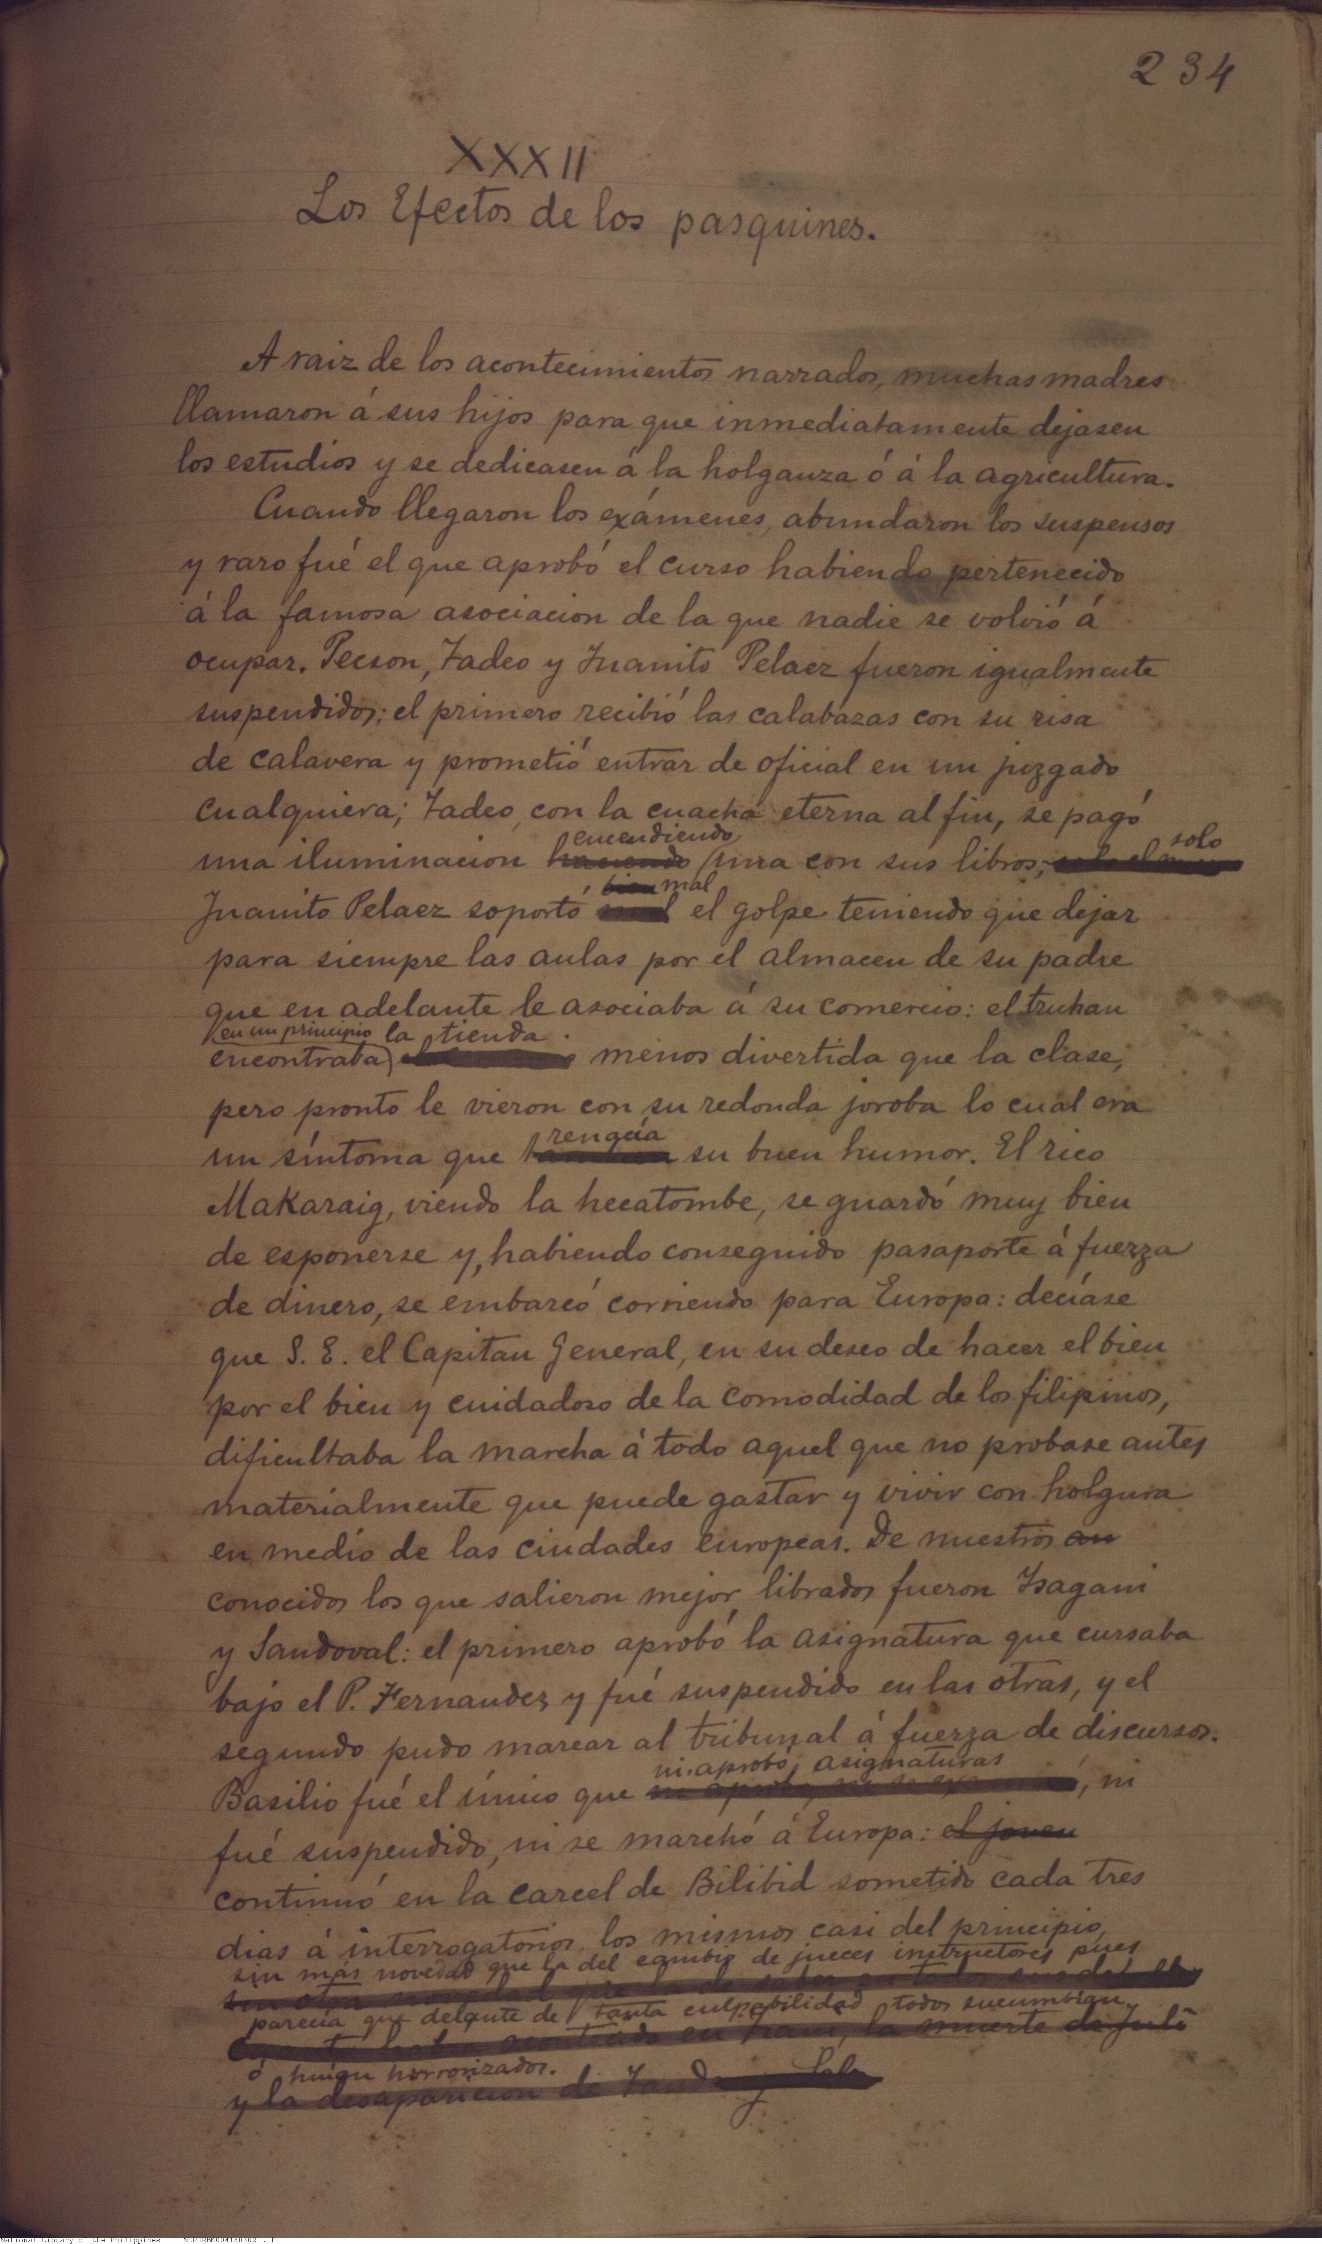 234
XXXII
Los Efectos de los pasquines.
A raiz de los acontecimientos narrados, muchas madres
llamaron á sus hijos para que inmediatamente dejasen
los estudios y se dedicasen á la holganza ó á la agricultura.
Cuando llegaron los exámenes, abundaron los suspensos
y raro fué el que aprobó el curso habiendo pertenecido
á la famosa asociacion de la que nadie se volvió á
ocupar. Pecson, Tadeo y Juanito Pelaez fueron igualmente
suspendidos; el primero recibió las calabazas con su risa
de calavera y prometió entrar de oficial en un juzgado
cualquiera; Tadeo, con la cuacha eterna al fin, se pagó
encendiendo solo
una iluminacion haciendo una con sus libros;
bien mal
Juanito Pelaez soportó mal el golpe teniendo que dejar
para siempre las aulas por el almacen de su padre
que en adelante le asociaba á su comercio: el truhan
en un principio la tienda
encontraba menos divertida que la clase,
pero pronto le vieron con su redonda joroba lo cual era
rengcía
un síntoma que su buen humor. El rico
Makaraig, viendo la hecatombe, se guardó muy bien
de esponerse y, habiendo conseguido pasaporte á fuerza
de dinero, se embarcó corriendo para Europa: decíase
que S. E. el Capitan General, en su deseo de hacer el bien
por el bien y cuidadoso de la comodidad de los filipinos,
dificultaba la marcha á todo aquel que no probase antes
materialmente que puede gastar y vivir con holgura
en medio de las ciudades europeas. De nuestros an
conocidos los que salieron mejor librados fueron Isagani
y Sandoval: el primero aprobó la asignatura que cursaba
bajo el P. Fernandez y fué suspendido en las otras, y el
segundo pudo marear al tribunal á fuerza de discursos.
ni aprobó asignaturas
Basilio fué el único que , ni
fué suspendido, ni se marchó á Europa: el joven
continuó en la carcel de Bilibid sometido cada tres
dias á interrogatorios, los mismos casi del principio,
sin más novedad que la del cambio de jueces instructores pues
sin otra
parecía que delante de tanta culpabilidad todos sucumbían
en Tiani, la muerte de Juli
ó huían horrorizados.
y la desaparicion de Tandang Selo